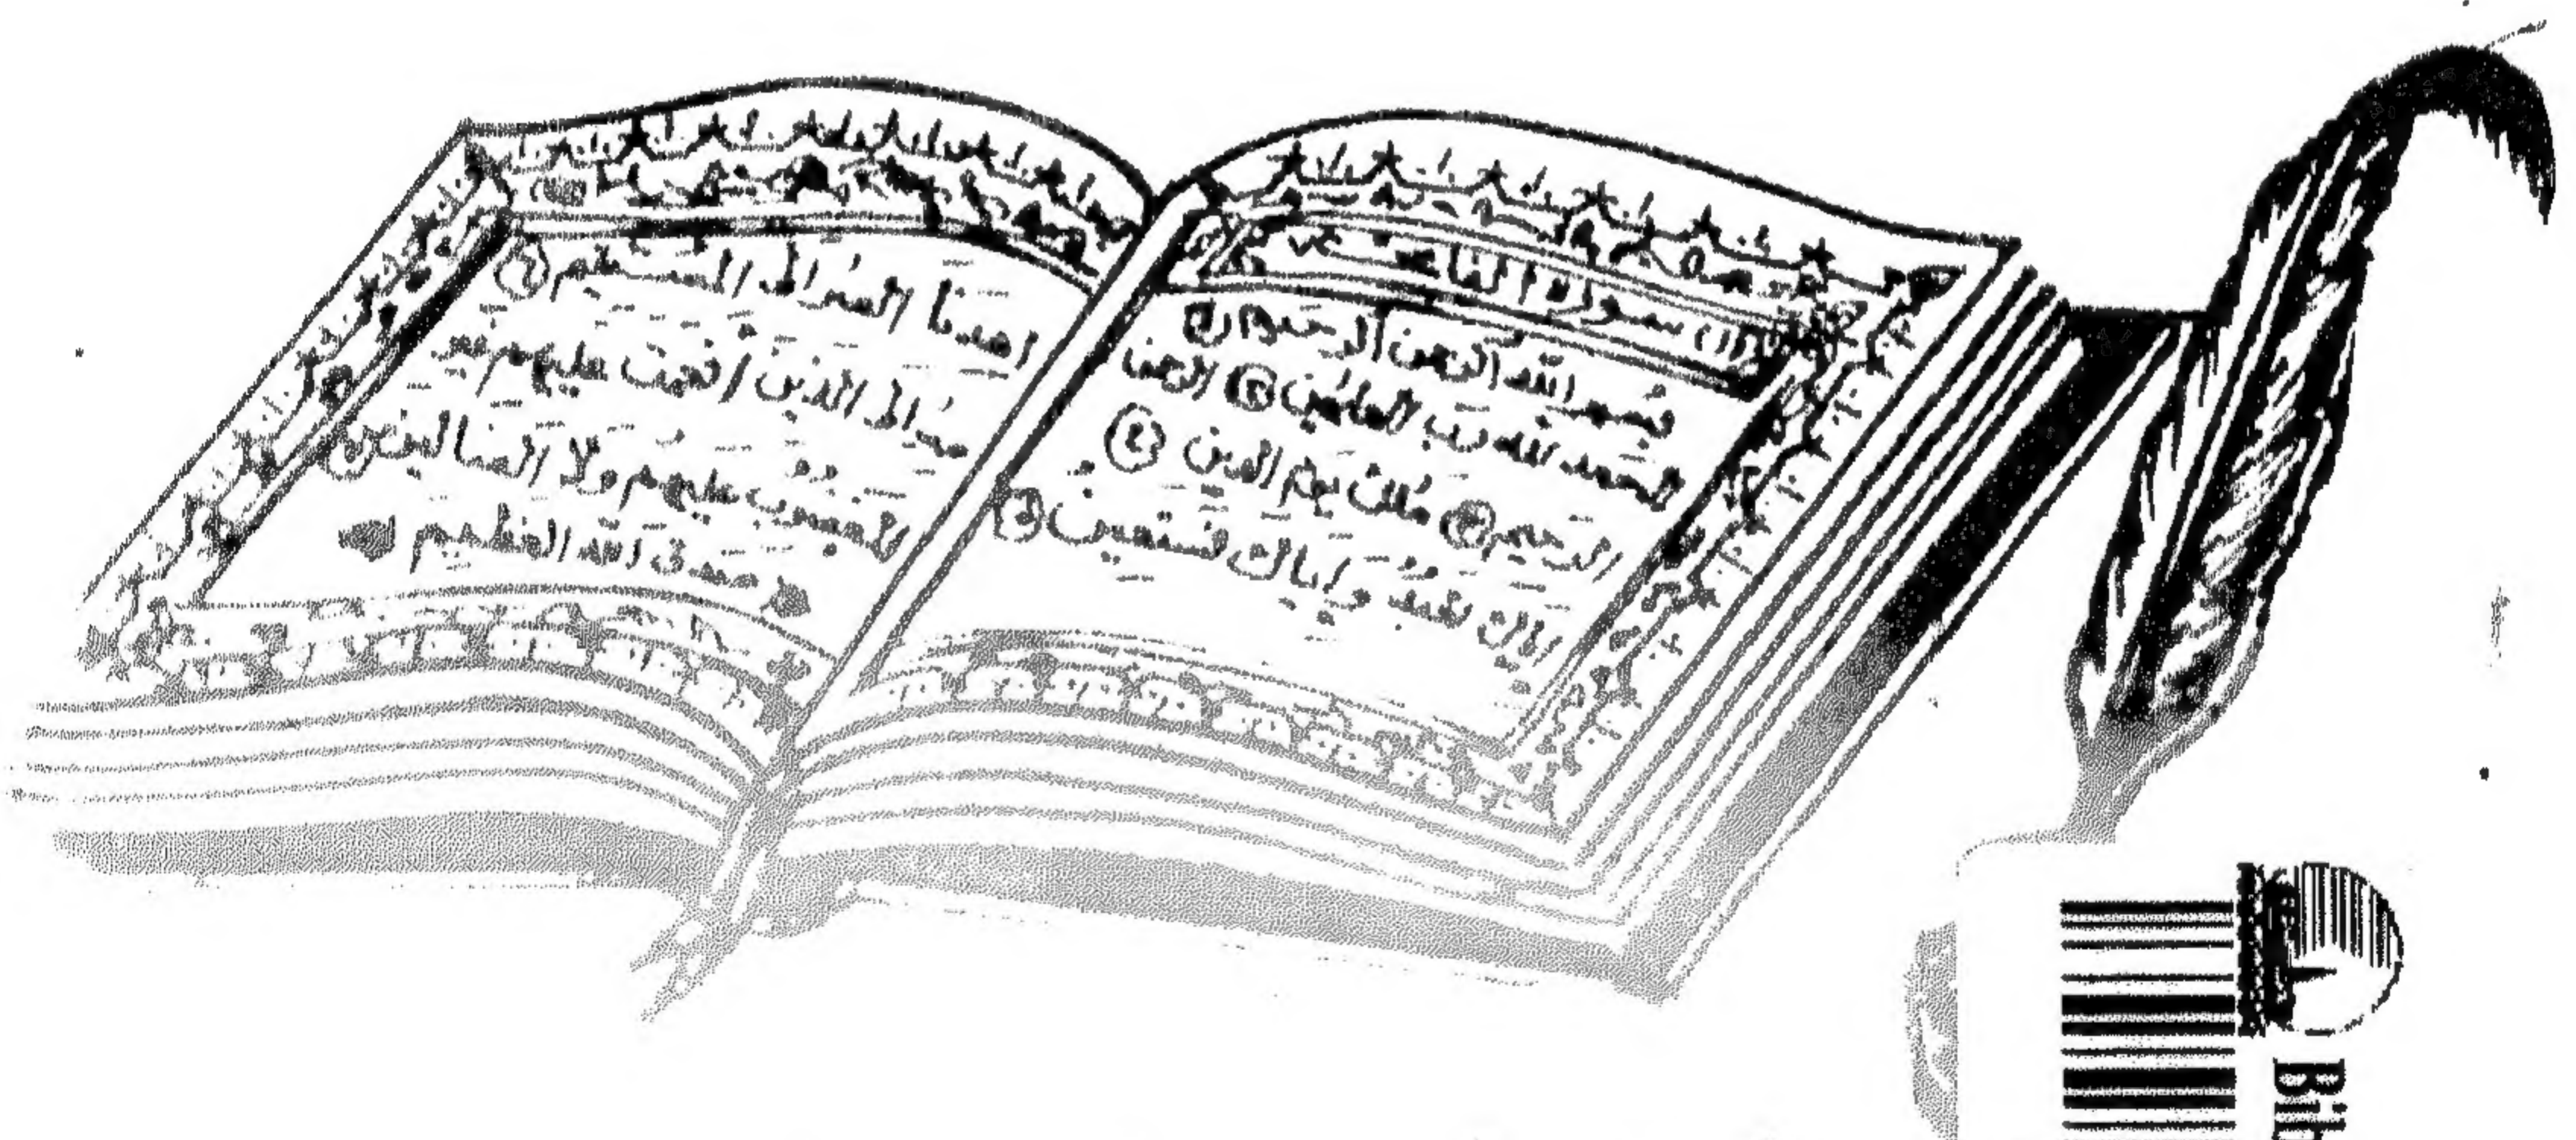 (١) سورة الفاتحة
بسم الله الرحمن الرحيم (١)
الحمد لله رب العالمين (٢) الرحمن
الرحيم (٣) ملك يوم الدين (٤)
إياك نعبد وإياك نستعين (٥)
اهدنا الصراط المستقيم (٦)
صراط الذين أنعمت عليهم غير
المغضوب عليهم ولا الضالين (٧)
صدق الله العظيم